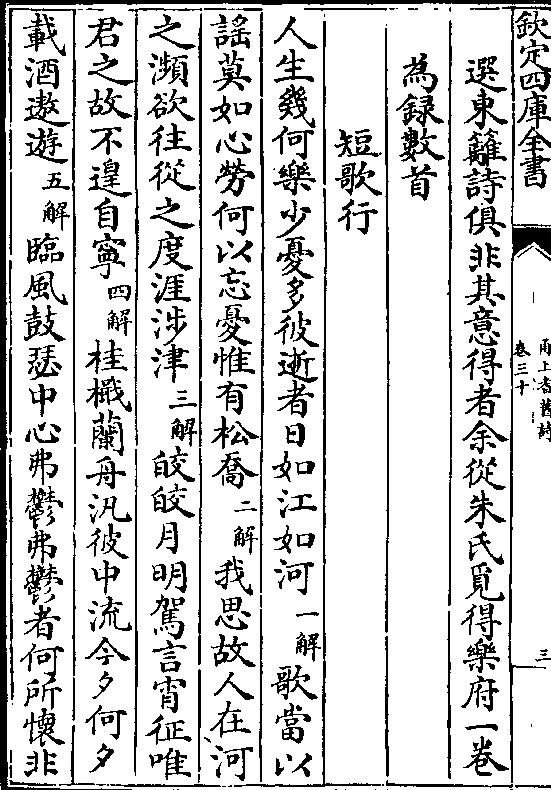 欽定四庫全書
甬上耆舊詩
卷三十
三
選東籬詩俱非其意得者余從朱氏覓得樂府一卷
為録數首
短歌行
人生幾何樂少憂多彼逝者日如江如河一解歌當以
謡莫如心勞何以忘憂惟有松喬二解我思故人在河
之瀕欲往從之度涯涉津三解皎皎月明駕言宵征唯
君之故不遑自寧四解桂檝蘭舟汎彼中流今夕何夕
載酒遨遊五解臨風鼓瑟中心弗鬱弗鬱者何所懷非